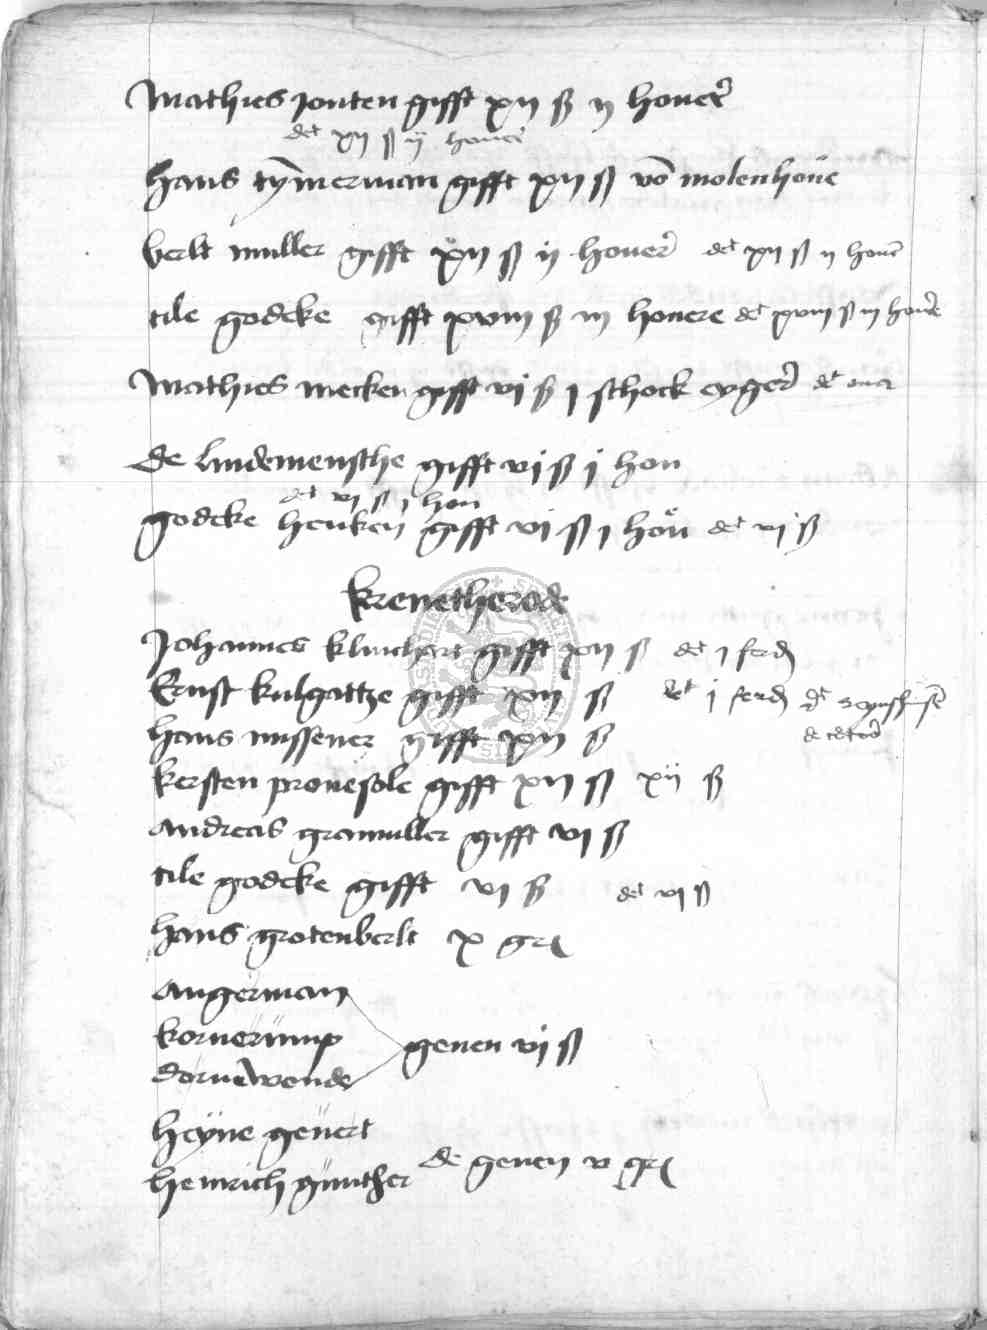 Mathies Jonten gifft xij ß ij honer
det xij ß ij honer
hans tymerman gifft xij ß vō molenhoue
berlt muller gifft xij ß ij honer det xij ß ij honer
tile godeke gifft xviij ß iij honere det xviij ß iij honer
Mathies mecken gifft vi ß j schock eyger det
de lindemensche gifft vi ß j hon
det vi ß j hon
godeke henken gifft vi ß j hon det vi ß
krenetherode
Johannes klinchart gifft xij ß det j ferd
Ernst kulgattze gifft xij ß det j ferd det
hans missener gifft xij ß
kersten pronesole gifft xij ß xij ß
andreas gramuller gifft vi ß
tile godeke gifft vi ß det vi ß
hans grotenberlt x gr
angerman
kornerump geuen vi ß
dornewende
heyne geuert
heinrich gunther de geuen v gr